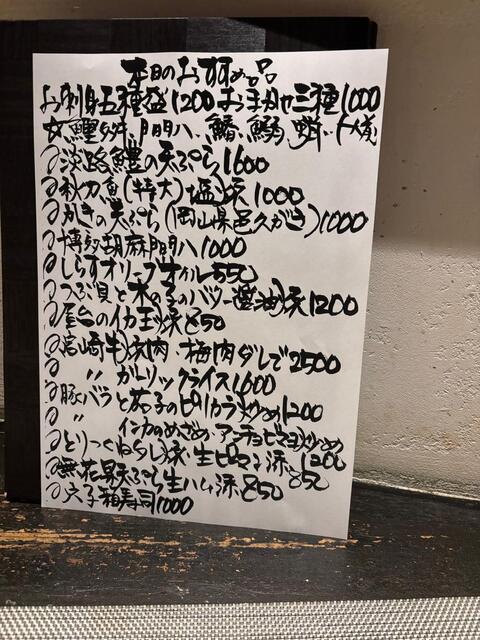 本日のおすすめ品
お刺身五種盛1200 お手毬三種1000
鱧の天ぷら1600
秋刀魚(特大)塩焼1000
かきの天ぷら(岡山県邑久がき)1000
博多胡麻1000
しらすオリーブオイル550
つぶ貝と木の子のバター醤油焼1200
屋台のイカ玉焼850
宮崎牛焼肉、梅肉ダレで2500
〃 ガーリックライス1600
豚バラと茄子のピリカラ炒め1200
〃 インカのめざめ アンチョビマヨ炒め1200
とりつくねタレ焼、生ピーマン添850
無花果天ぷら生ハム添850
穴子箱寿司1000